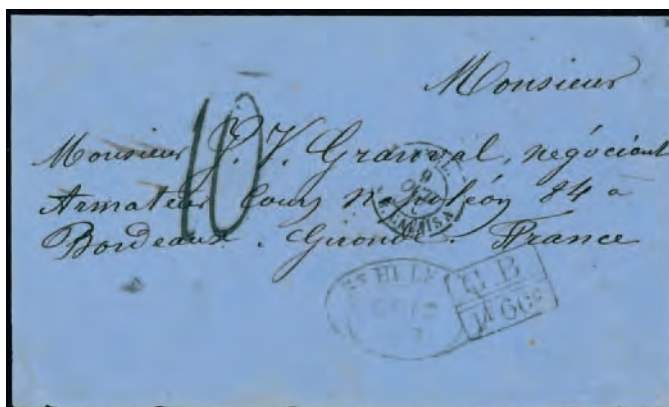 Monsieur
Monsieur J. V. Granval, négociant
Armateur Cours Napoléon 84 a
Bordeaux. Gironde. France
10
ST HELE
G B
1F 60c